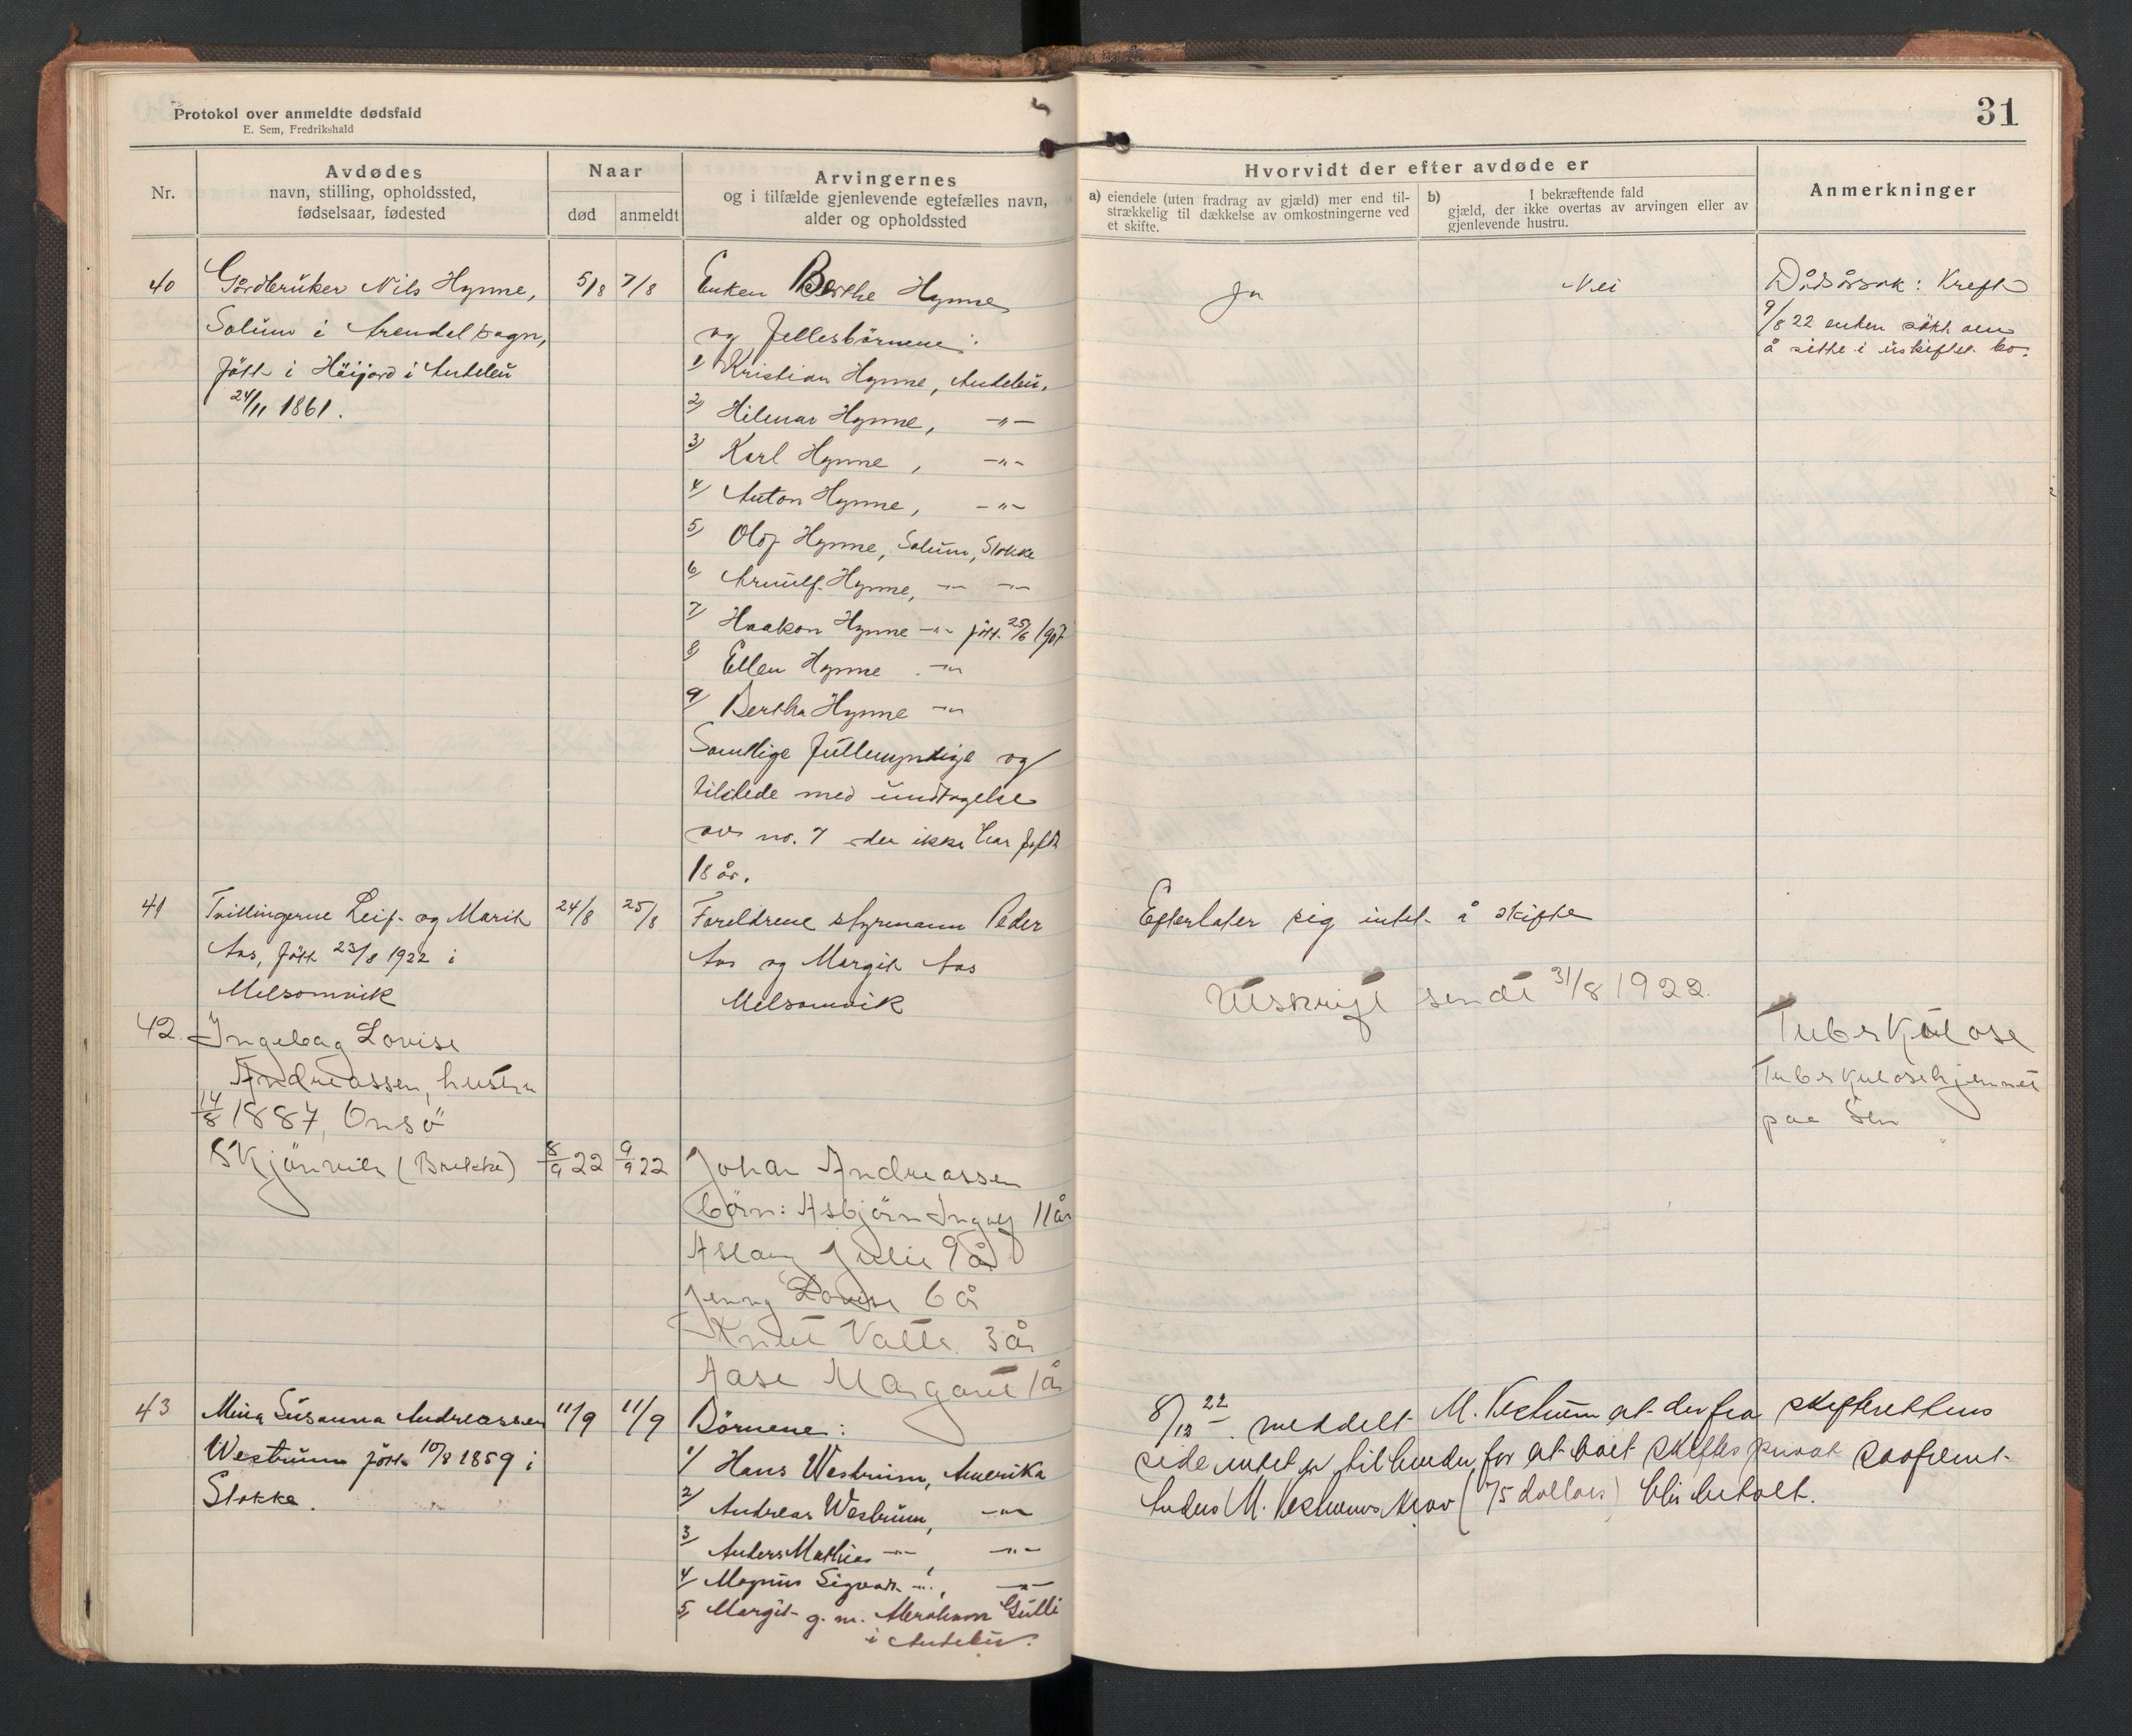 Protokol over anmeldte dødsfald
E. Sem, Fredrikshald
31
Nr.
Avdødes
navn, stilling, opholdssted,
fødselsaar, fødested
Naar
død
anmeldt
Arvingernes
og i tilfælde gjenlevende egtefælles navn,
alder og opholdssted
Hvorvidt der efter avdøde er
a) eiendele (uten fradrag av gjæld) mer end til-
strækkelig til dækkelse av omkostningerne ved
et skifte.
b) I bekræftende fald
gjæld, der ikke overtas av arvingen eller av
gjenlevende hustru.
Anmerkninger
40
Gårdbruker Nils Hynne,
Solum i Arendal sogn,
født i Høijord i Andebu
24/11 1861.
5/8
7/8
Enken Berthe Hynne
og fellesbörnene:
1/ Kristian Hynne, Andebu.
2/ Hilmar Hynne, -"-
3/ Karl Hynne, -"-
4/ Anton Hynne, -"-
5/ Olaf Hynne, Solum, Stokke
6/ Arnulf Hynne, -"- -"-
7/ Haakon Hynne -"- född 25/6 1907
8/ Ellen Hynne -"-
9/ Bertha Hynne -"-
Samtlige fullmyndige og
tilstede med undtagelse
av no. 7 der ikke har fyllt
18 år.
Ja
Nei
Dødsårsak: Kreft
9/8 22 enken søkt om
å sitte i uskiftet bo.
41
Tvillingerne Leif og Marit
Aas, født 23/8 1922 i
Melsomvik
24/8
25/8
Foreldrene styrmann Peder
Aas og Margit Aas
Melsomvik
Efterlater sig intet å skifte
Utskrift sendt 31/8 1922.
42.
Ingebog Lovise
Andreassen, hustru
14/8 1887, Onsö
Skjönvik (Brekke)
8/9 22
9/9 22
Johan Andreassen
börn: Asbjörn Ingolf 11 år
Aslaug Julie 9 år
Jenny Lovise 6 år
Knut Valter 3 år
Aase Margaret 1 år
Tuberkulose
Tuberkulosehjemmet
paa Sem
43
Mina Susanna Andreassen
Westrum född 10/8 1859 i
Stokke.
11/9
11/9
Börnene:
1/ Hans Westrum, Amerika
2/ Andreas Westrum, -"-
3/ Anders Mathias -"-, -"-
4/ Magnus Sigvart -"-, -"-
5/ Margit g. m. Abraham Gulli
i Andebu.
8/12 22. meddelt M. Vestrum at der fra skifterettens
side intet er til hinder for at boet skiftes privat saafremt
Anders M. Vestrums krav (75 dollars) blir betalt.